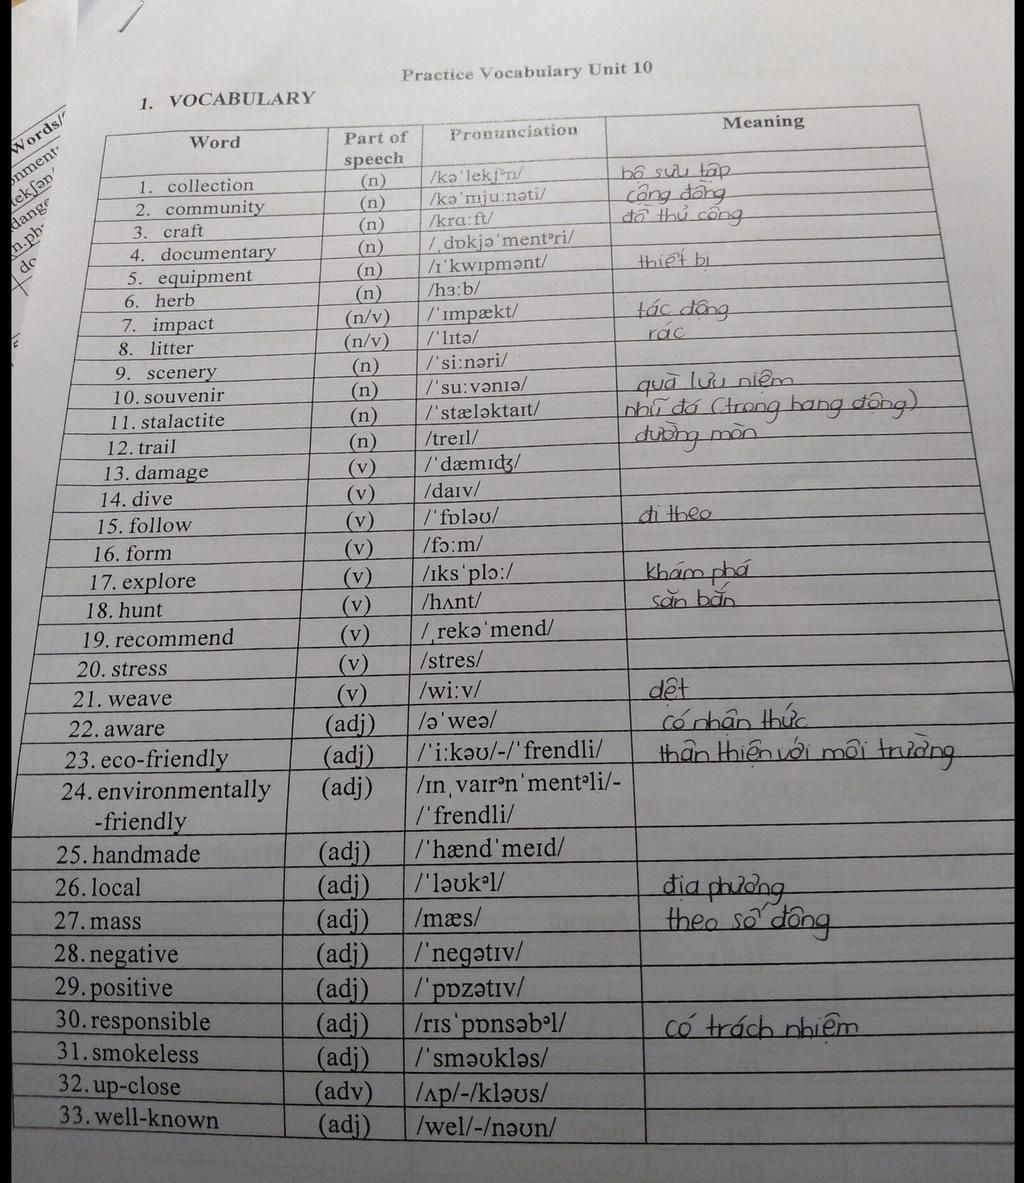 Practice Vocabulary Unit 10
1. VOCABULARY
Word Part of speech Pronunciation Meaning
1. collection (n) /kəˈlekʃᵊn/ bộ sưu tập
2. community (n) /kəˈmjuːnəti/ cộng đồng
3. craft (n) /krɑːft/ đồ thủ công
4. documentary (n) /ˌdɒkjəˈmentᵊri/
5. equipment (n) /ɪˈkwɪpmənt/ thiết bị
6. herb (n) /hɜːb/
7. impact (n/v) /ˈɪmpækt/ tác động
8. litter (n/v) /ˈlɪtə/ rác
9. scenery (n) /ˈsiːnəri/
10. souvenir (n) /ˈsuːvənɪə/ quà lưu niệm
11. stalactite (n) /ˈstæləktaɪt/ nhũ đá (trong hang động)
12. trail (n) /treɪl/ đường mòn
13. damage (v) /ˈdæmɪʤ/
14. dive (v) /daɪv/
15. follow (v) /ˈfɒləʊ/ đi theo
16. form (v) /fɔːm/
17. explore (v) /ɪksˈplɔː/ khám phá
18. hunt (v) /hʌnt/ săn bắn
19. recommend (v) /ˌrekəˈmend/
20. stress (v) /stres/
21. weave (v) /wiːv/ dệt
22. aware (adj) /əˈweə/ có nhận thức
23. eco-friendly (adj) /ˈiːkəʊ/-/ˈfrendli/ thân thiện với môi trường
24. environmentally (adj) /ɪnˌvaɪrᵊnˈmentᵊli/-
-friendly /ˈfrendli/
25. handmade (adj) /ˈhændˈmeɪd/
26. local (adj) /ˈləʊkᵊl/ địa phương
27. mass (adj) /mæs/ theo số đông
28. negative (adj) /ˈnegətɪv/
29. positive (adj) /ˈpɒzətɪv/
30. responsible (adj) /rɪsˈpɒnsəbᵊl/ có trách nhiệm
31. smokeless (adj) /ˈsməʊkləs/
32. up-close (adv) /ʌp/-/kləʊs/
33. well-known (adj) /wel/-/nəʊn/